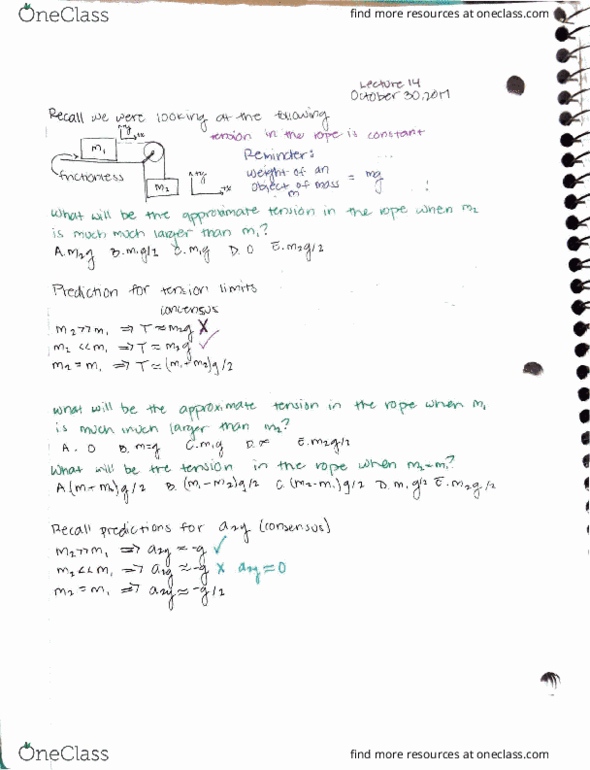 OneClass
find more resources at oneclass.com
Lecture 14
October 30, 2017
Recall we were looking at the following
tension in the rope is constant
+y
+x
m₁
frictionless
m₂
+y
+x
Reminder:
weight of an
object of mass = mg
m
What will be the approximate tension in the rope when m₂
is much much larger than m₁?
A. m₂g B. m₁g/2 C. m₁g D. 0 E. m₂g/2
Prediction for tension limits
concensus
m₂>>m₁ ⇒ T≈m₂g X
m₂<<m₁ ⇒ T≈m₂g ✓
m₂=m₁ ⇒ T≈(m₁+m₂)g/2
What will be the approximate tension in the rope when m₁
is much much larger than m₂?
A. 0 B. m₂g C. m₁g D. ∞ E. m₂g/2
What will be the tension in the rope when m₂=m₁?
A. (m₁+m₂)g/2 B. (m₁-m₂)g/2 C. (m₂-m₁)g/2 D. m₁g/2 E. m₂g/2
Recall predictions for a₂y (consensus)
m₂>>m₁ ⇒ a₂y≈-g ✓
m₂<<m₁ ⇒ a₂y≈-g X a₂y=0
m₂=m₁ ⇒ a₂y≈-g/2
OneClass
find more resources at oneclass.com